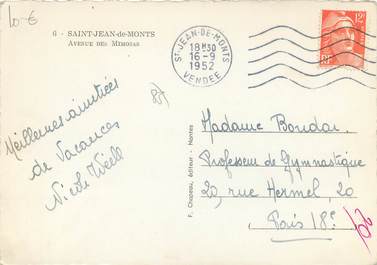 10-€
6 - SAINT-JEAN-de-MONTS
AVENUE DES MIMOSAS
ST-JEAN-DE-MONTS
18H30
16-9
1952
VENDEE
12F
RF
87
Meilleures amitiés
de Vacances
Nicole Weill
F. Chapeau, éditeur - Nantes
Madame Boudar
Professeur de Gymnastique
20, rue Hermel, 20
Paris 18e